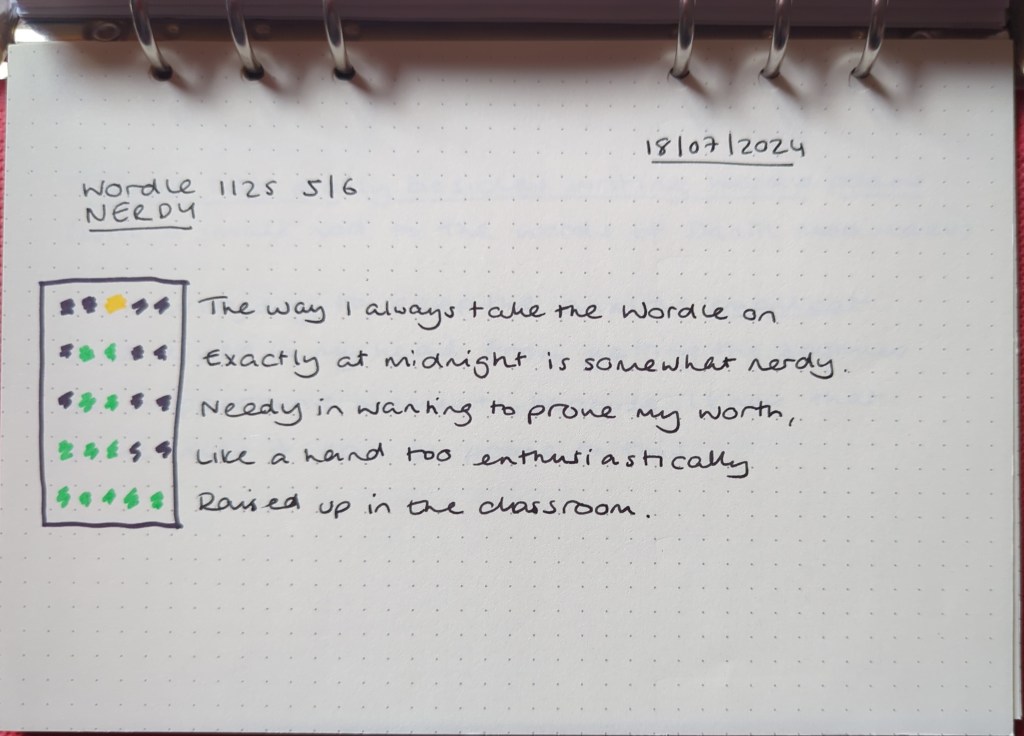 18/07/2024
Wordle 1125 5/6
NERDY
The way I always take the Wordle on
Exactly at midnight is somewhat nerdy.
Needy in wanting to prove my worth,
Like a hand too enthusiastically
Raised up in the classroom.